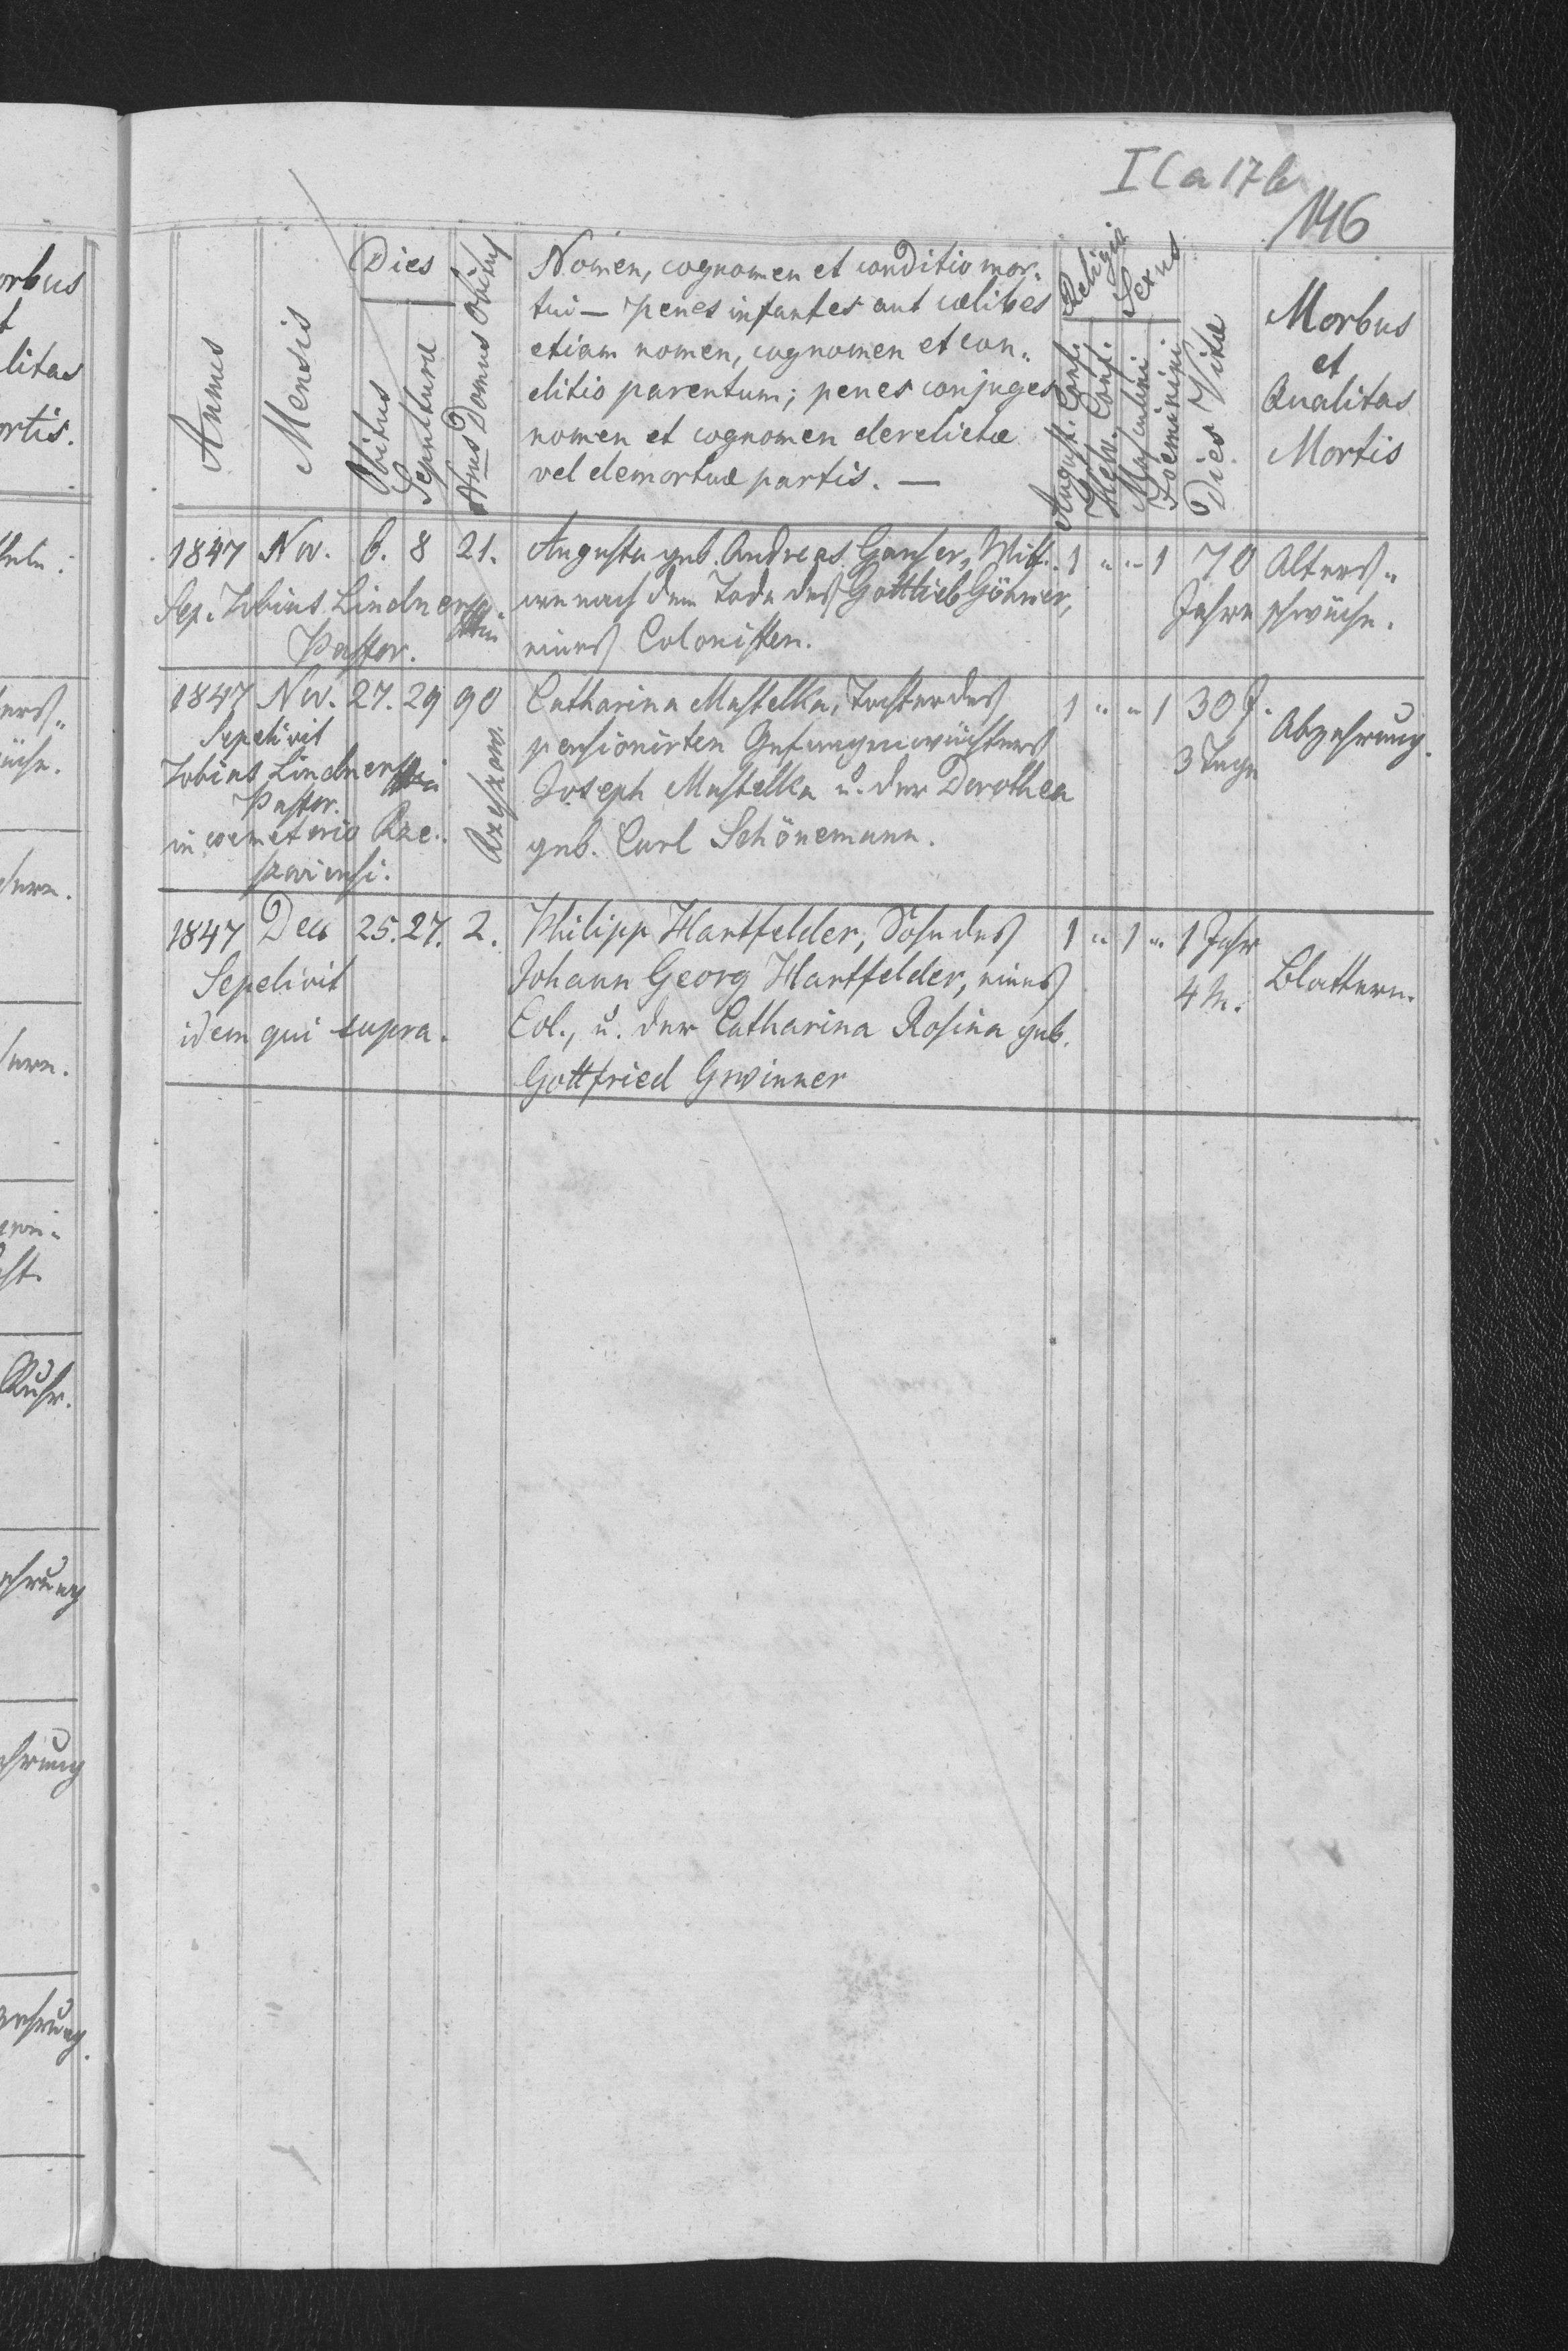 I C a 17 b
146
Annus
Mensis
Dies
Obitus
Sepulturæ
Nrus Domus Obitus
Nomen, cognomen et conditio mor„
tui — penes infantes aut cœlibes
etiam nomen, cognomen et con„
ditio parentum; penes conjuges
nomen et cognomen derelictæ
vel demortuæ partis. —
Religio
August. Conf.
Helv. Conf.
Sexus
Masculini
Foeminini
Dies Vitæ
Morbus
et
Qualitas
Mortis
1847 Nov. 6. 8 21. Augusta geb. Andreas Ganser, Witt„ 1 „ „ 1 70 Alters„
Sep. Tobias Lindner we nach dem Tode des Gottlieb Gönner, Jahre schwäche.
Pastor. eines Colonisten.
1847 Nov. 27. 29 90 Catharina Mastelka, Tochter des 1 „ „ 1 30 J. Abzehrung.
Sepelivit pensionirten Gefangenwächters 3 Tage
Tobias Lindner Joseph Mastelka u. der Dorothea
Pastor.
in coemeterio Rze„ geb. Carl Schönemann.
szoviensi.
Rzeszow.
1847 Dec 25. 27. 2. Philipp Hartfelder, Sohn des 1 „ 1 „ 1 Jahr Blattern.
Sepelivit Johann Georg Hartfelder, eines 4 M.
idem qui supra. Col., u. der Catharina Rosina geb.
Gottfried Gwinner
orbus
t
litas
ortis.
ers„
äche.
Ruhr.
ehrung
ehrung
zehrung.